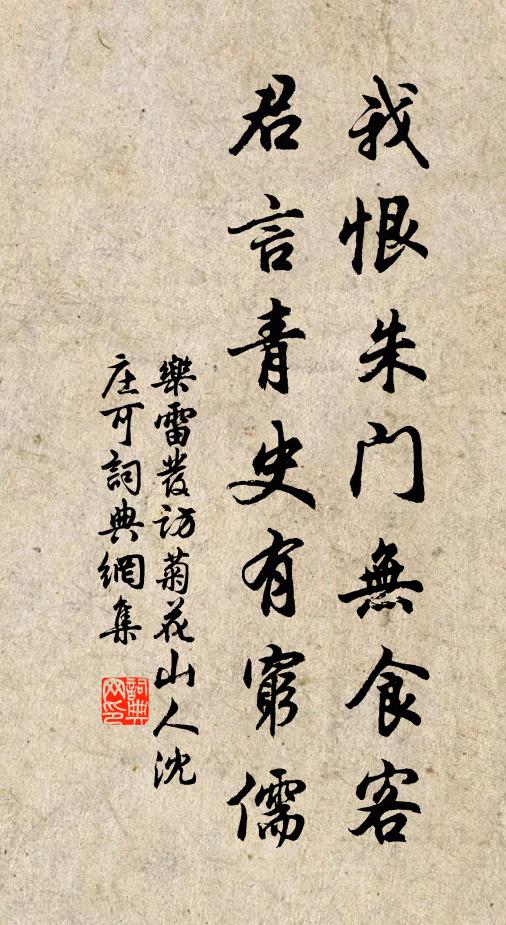 我恨朱門無食客
君言青史有窮儒
樂雷發訪菊花山人沈
庄可詞典網集
詞典
网印